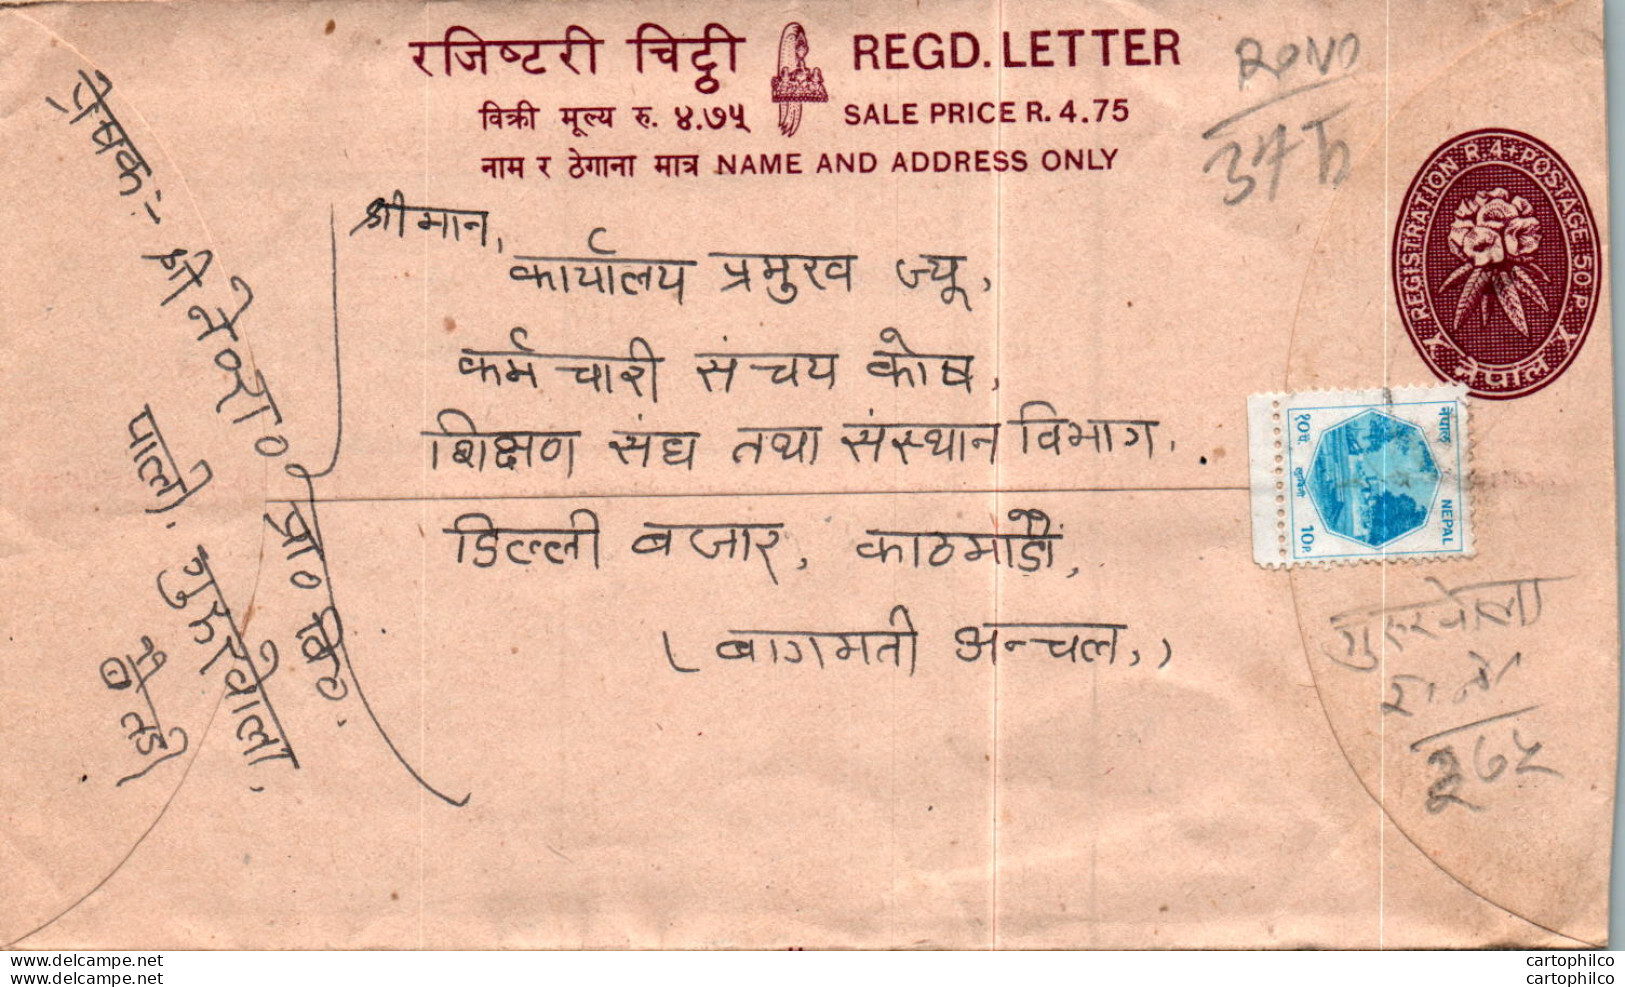 रजिष्टरी चिट्ठी REGD. LETTER
विक्री मूल्य रु. ४.७५ SALE PRICE R. 4.75
नाम र ठेगाना मात्र NAME AND ADDRESS ONLY
REGISTRATION R.4. POSTAGE 50 P.
नेपाल
श्रीमान,
कार्यालय प्रमुख ज्यू,
कर्मचारी संचय कोष,
शिक्षण संघ तथा संस्थान विभाग,
डिल्ली बजार, काठमाडौं,
(बागमती अन्चल,)
प्रेषक:- श्री प्रा० वि०
गुरुखोला,
नेपाल १०पै.
NEPAL 10P.
गुरुखोला
cartophilco
www.delcampe.net
cartophilco
www.delcampe.net